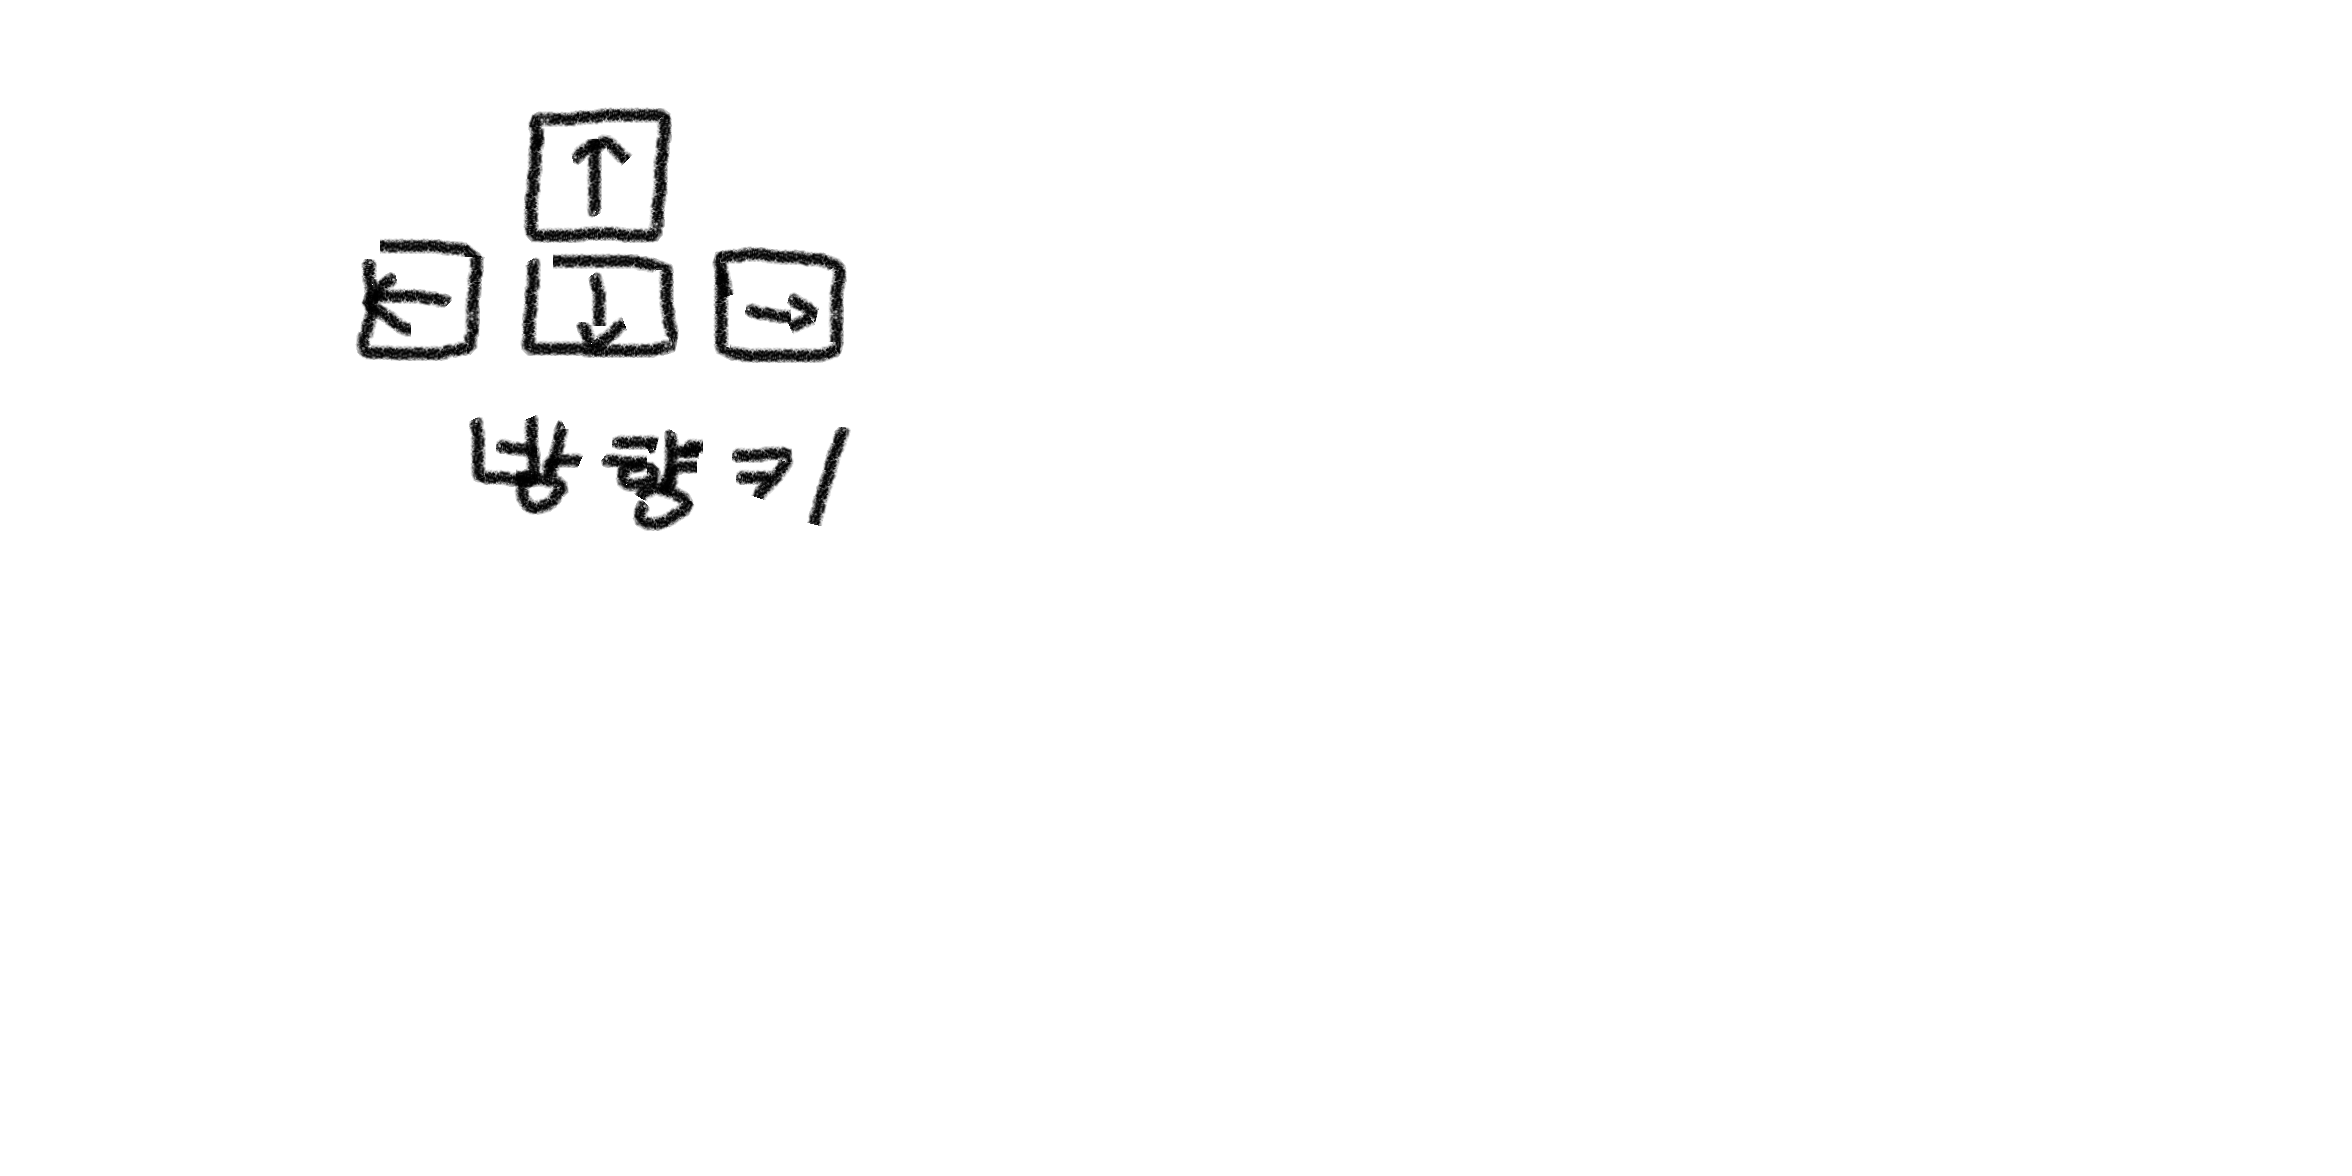 방향키